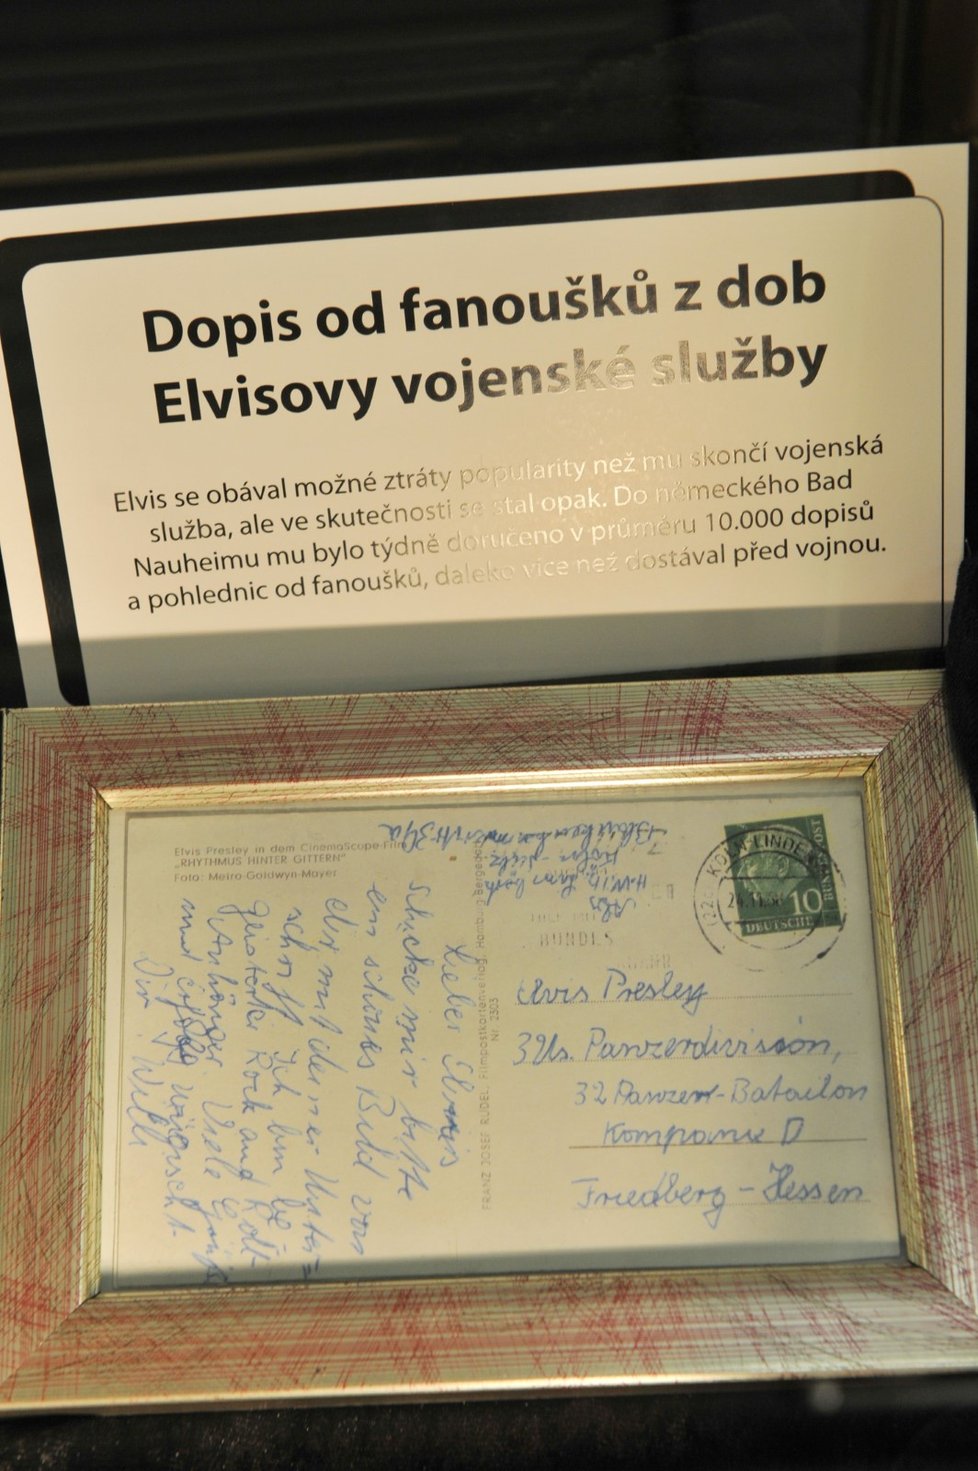 Dopis od fanoušků z dob
Elvisovy vojenské služby
Elvis se obával možné ztráty popularity než mu skončí vojenská
služba, ale ve skutečnosti se stal opak. Do německého Bad
Nauheimu mu bylo týdně doručeno v průměru 10.000 dopisů
a pohlednic od fanoušků, daleko více než dostával před vojnou.
Elvis Presley in dem CinemaScope-Film
„RHYTHMUS HINTER GITTERN"
Foto: Metro-Goldwyn-Mayer
Lieber Elvis
schicke mir bitte
ein schönes Bild von
dir mit deiner Unter=
schrift. Ich bin be-
geisterter Rock and Roll-
Anhänger. Viele Grüße
und Erfolg wünscht
Dir Willi
FRANZ JOSEF RÜDEL, Filmpostkartenverlag, Hamburg-Bergedorf
Nr. 2303
KÖLN-LINDEN
24.11.58
10
DEUTSCHE
BUNDES
Elvis Presley
3 Us. Panzerdivision,
32 Panzer-Batailon
Kompanie D
Friedberg - Hessen